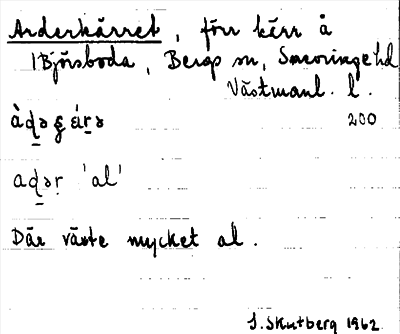 Arderkärret, förr kärr å
1 Björsboda, Bergs sn, Snevringe hd
Västmanl. l.
200
'al'
Där växte mycket al.
J. Skutberg 1962